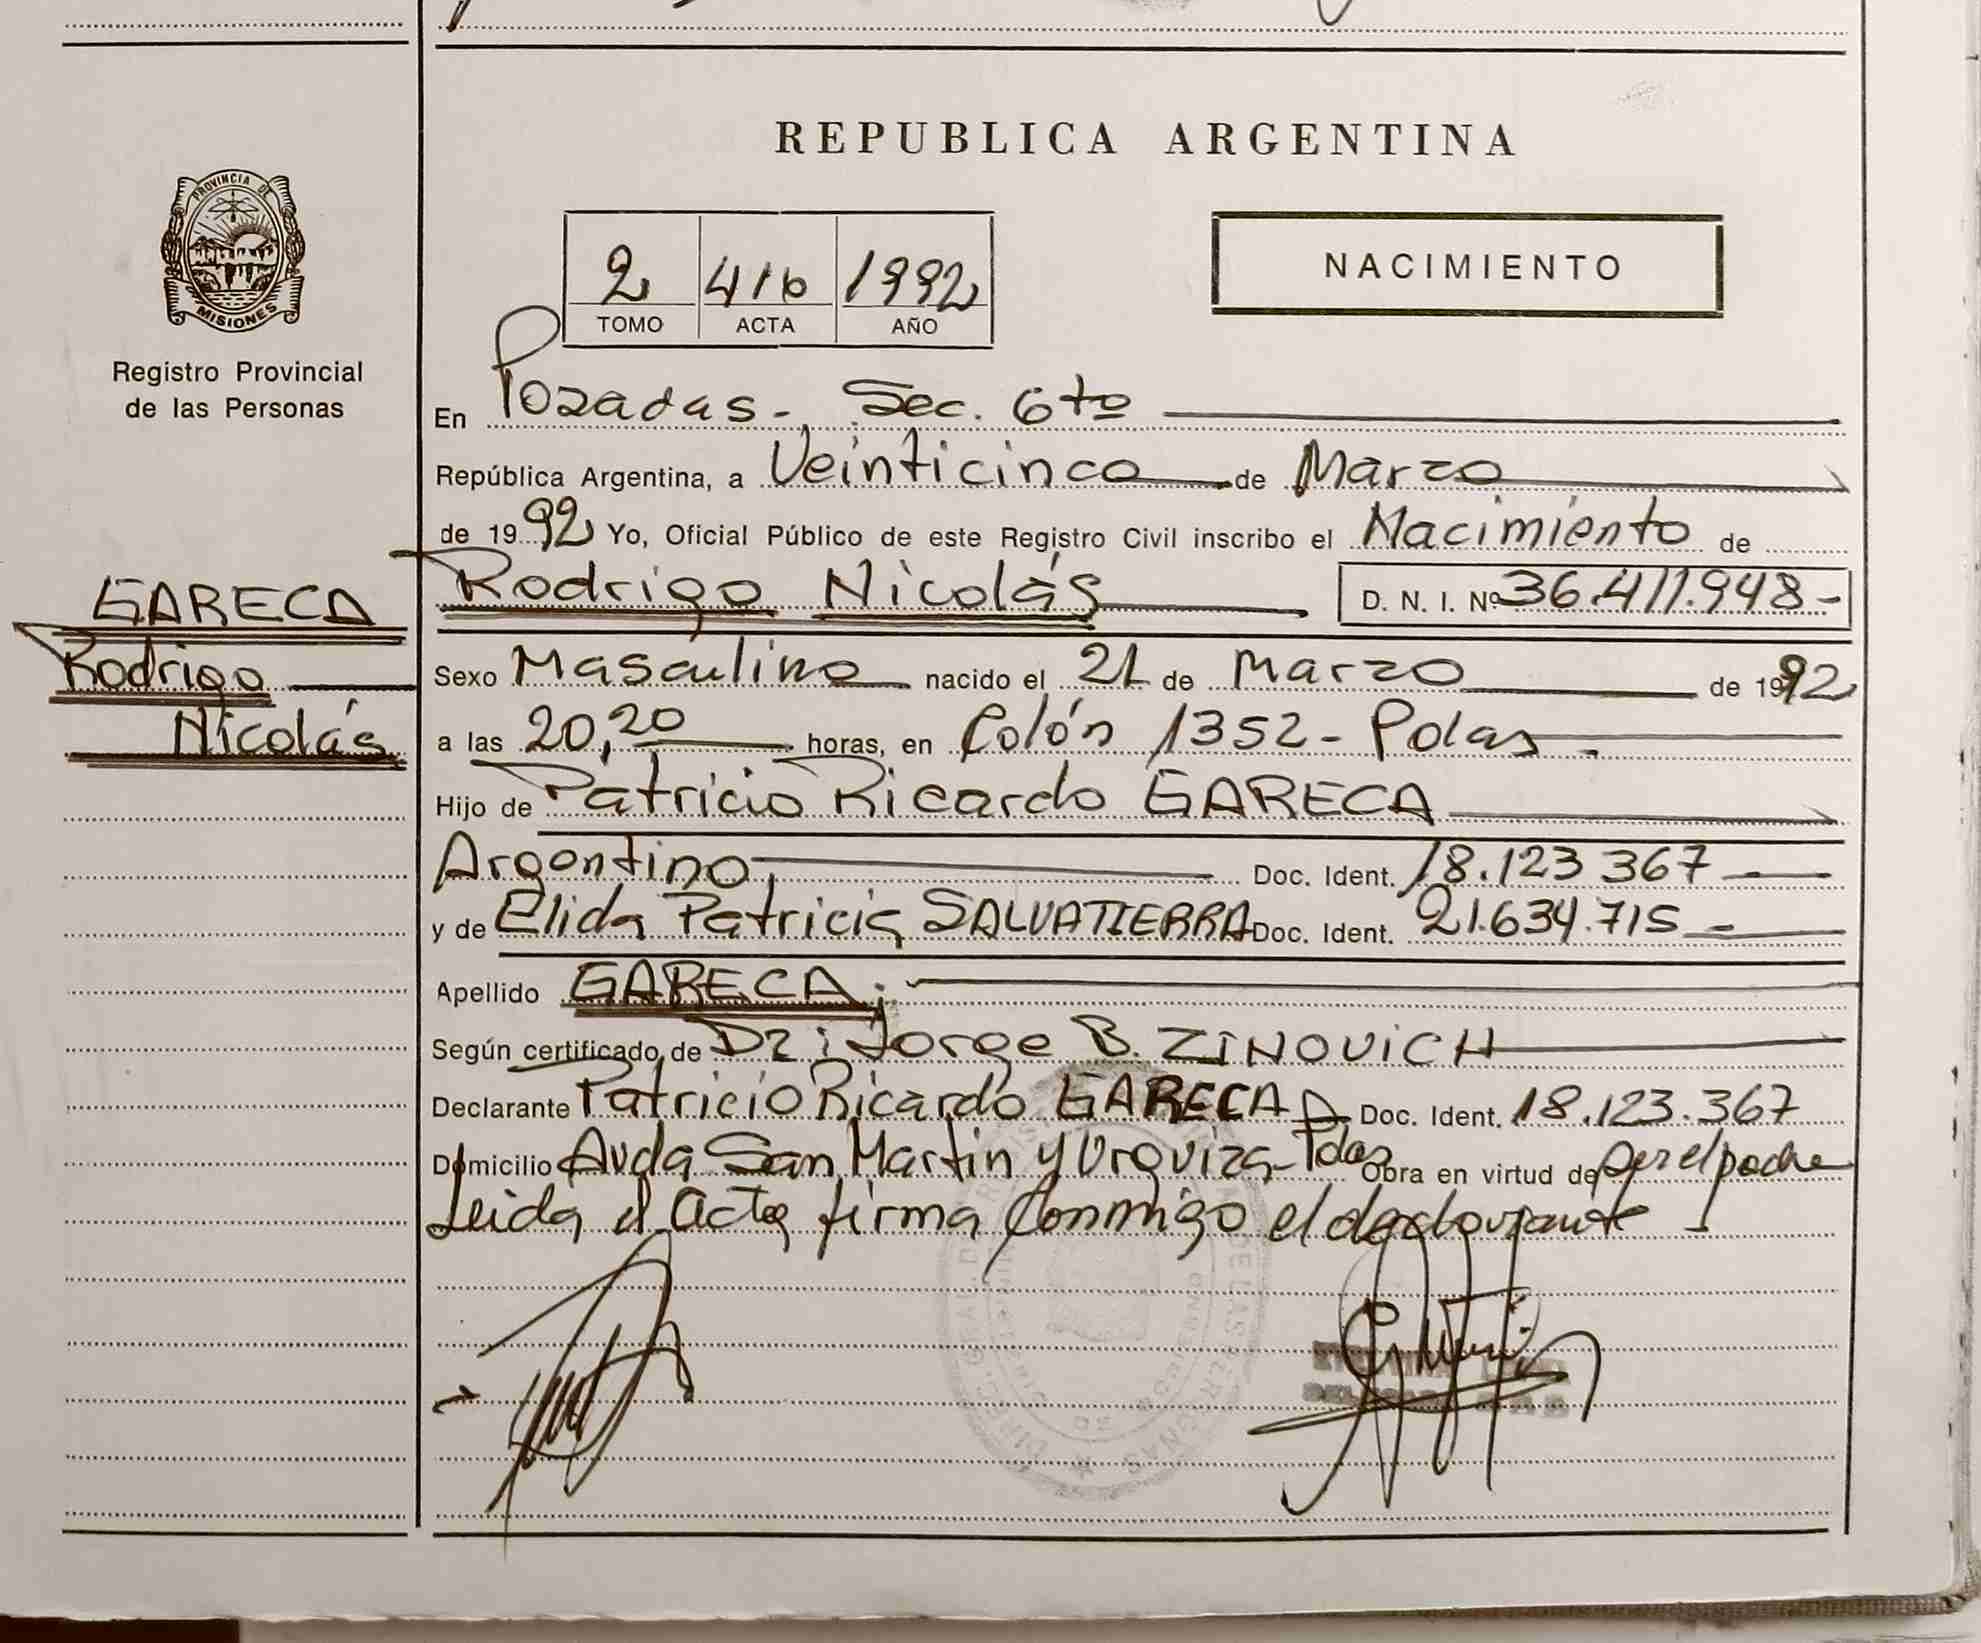 REPUBLICA ARGENTINA
PROVINCIA DE
MISIONES
Registro Provincial
de las Personas
2 416 1992
TOMO ACTA AÑO
NACIMIENTO
En Pozadas - Sec. 6to
República Argentina, a Veinticinco de Marzo
de 1992 Yo, Oficial Público de este Registro Civil inscribo el Nacimiento de
Rodrigo Nicolás D. N. I. Nº 36.411.948-
GARECA
Rodrigo
Nicolás
Sexo Masculino nacido el 21 de Marzo de 1992
a las 20,20 horas, en Colón 1352 - Pdas -
Hijo de Patricio Ricardo GARECA
Argentino Doc. Ident. 18.123 367
y de Elida Patricia SALVATIERRA Doc. Ident. 21.634.715
Apellido GARECA.
Según certificado de Dr: Jorge B. ZINOVICH
Declarante Patricio Ricardo GARECA Doc. Ident. 18.123.367
Domicilio Avda San Martin y Urquiza - Pdas Obra en virtud de ser el padre
Leida el Acta firma conmigo el declarante